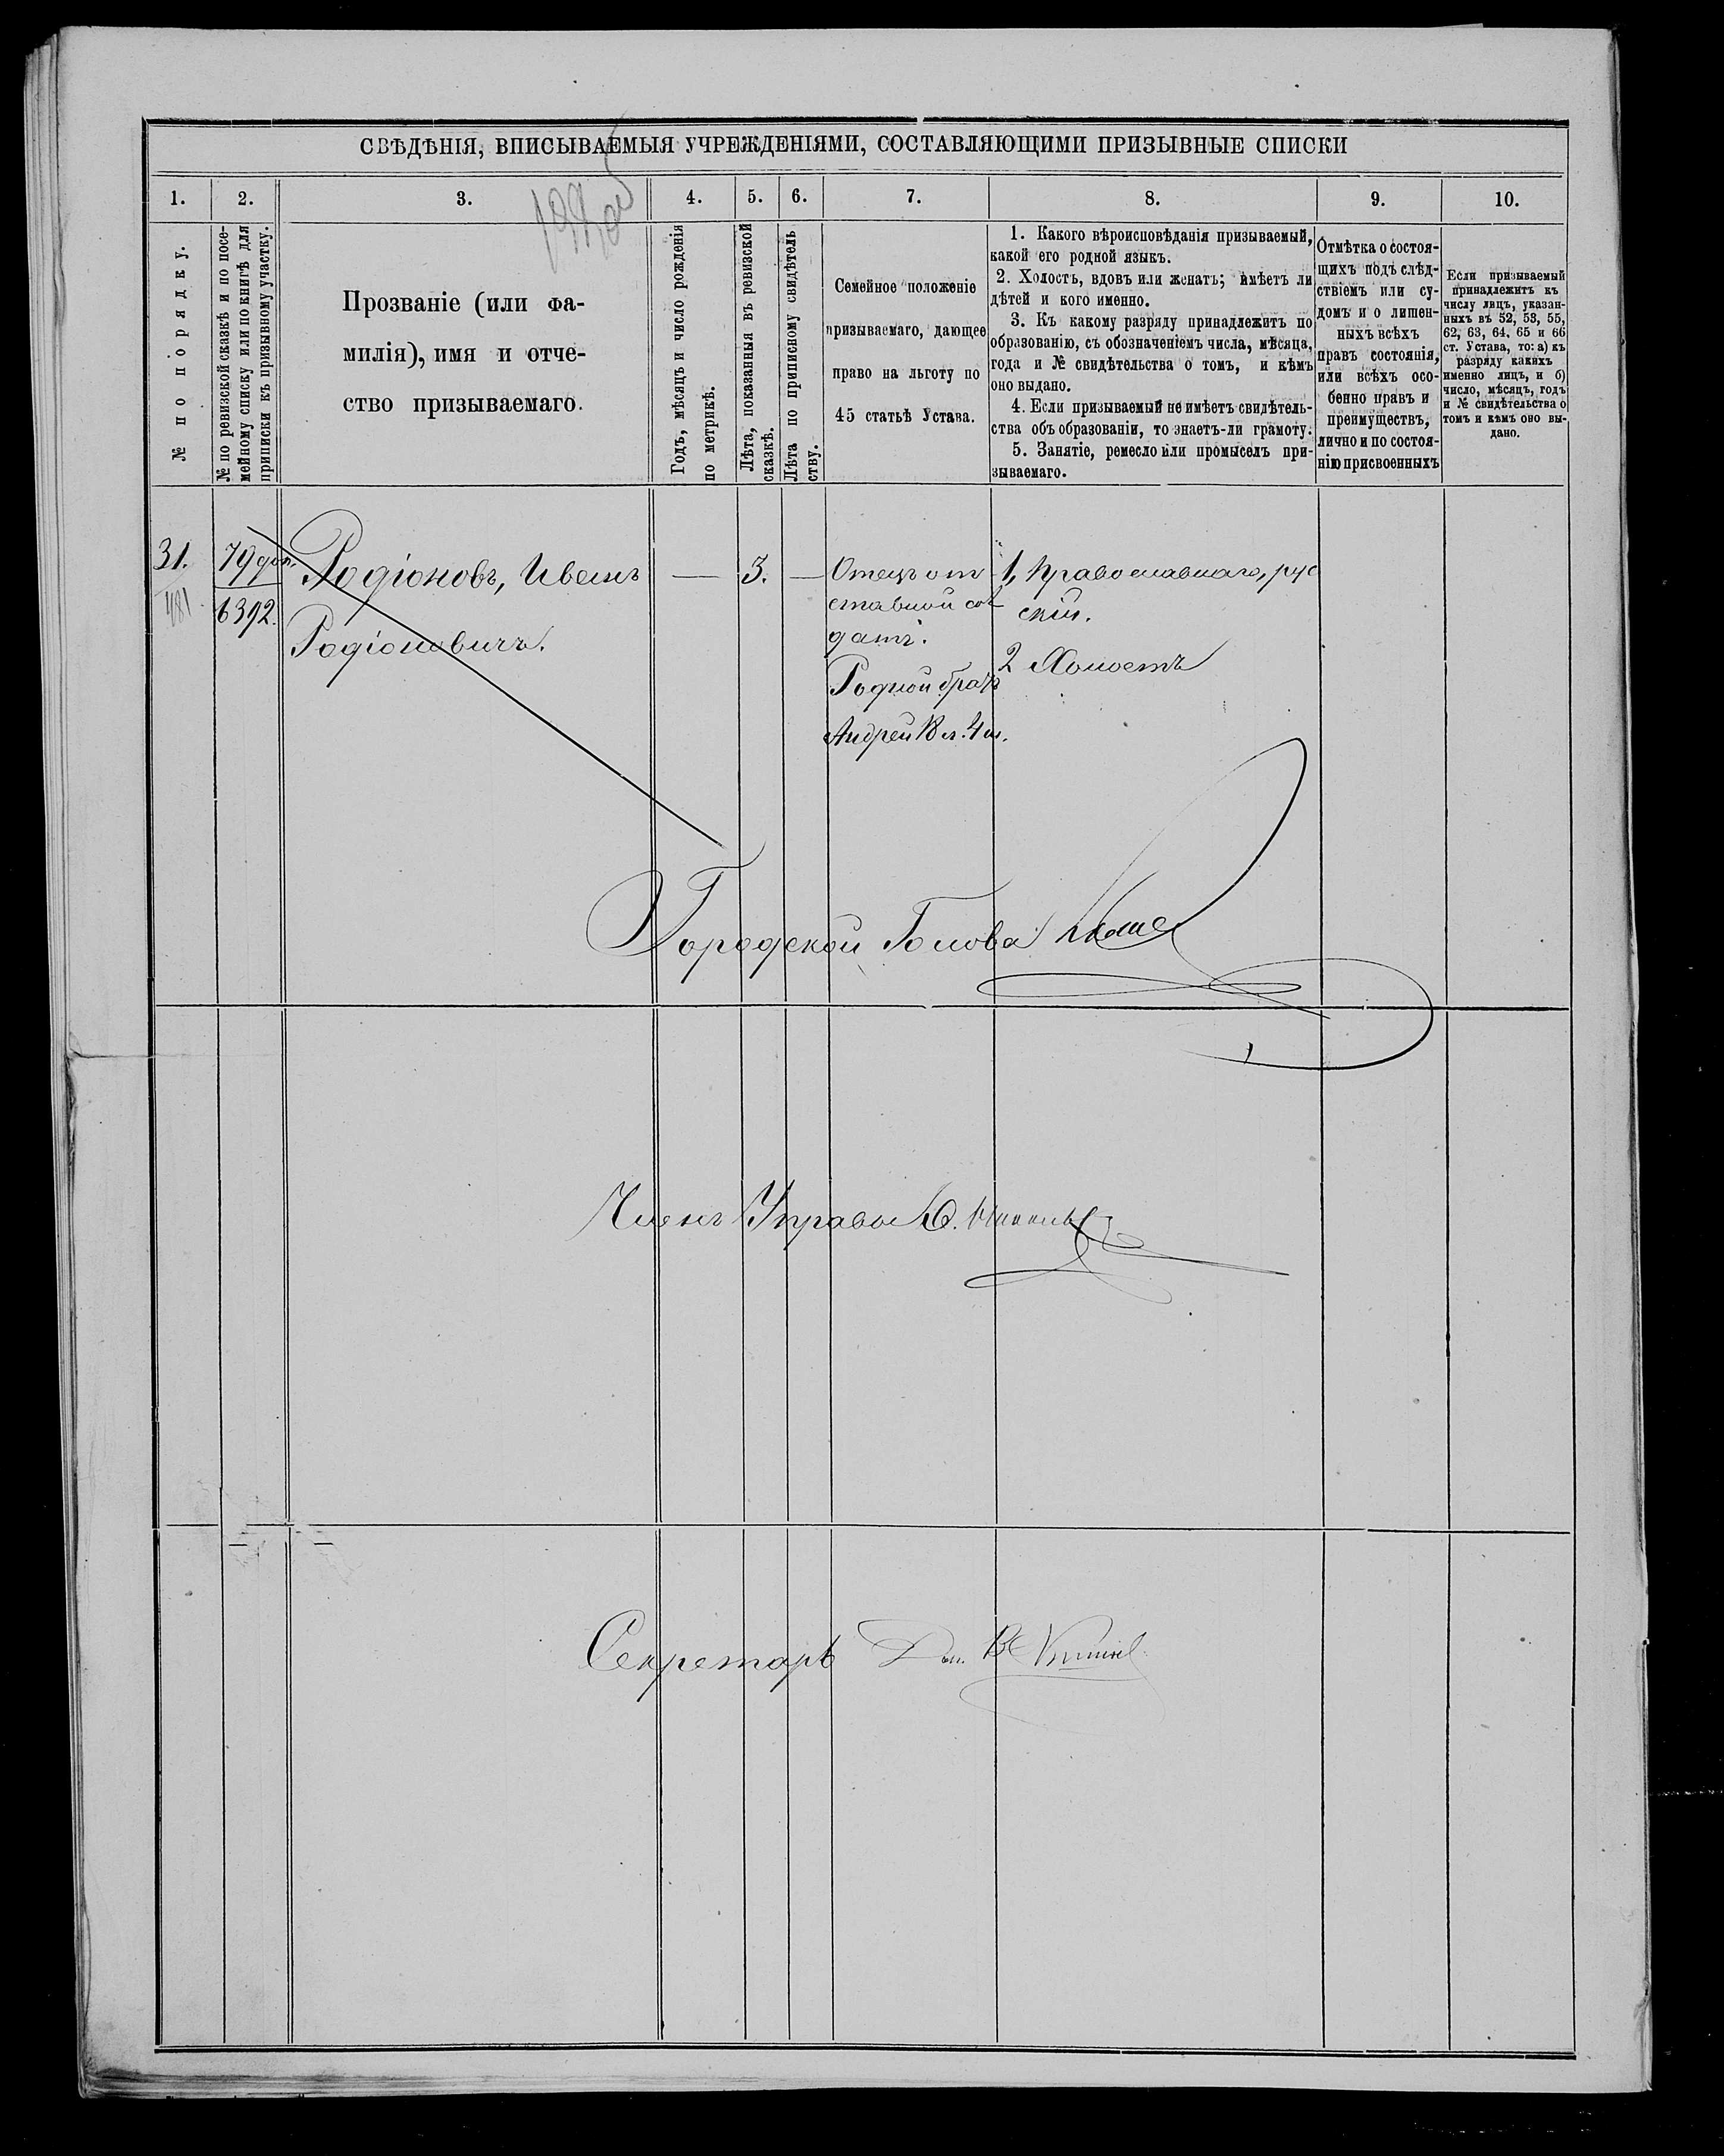 СВѢДѢНІЯ, ВПИСЫВАЕМЫЯ УЧРЕЖДЕНІЯМИ, СОСТАВЛЯЮЩИМИ ПРИЗЫВНЫЕ СПИСКИ
1. 2. 3. 4. 5. 6. 7. 8. 9. 10.
№ по порядку.
№ по ревизской сказкѣ и по посе-
мейному списку или по книгѣ для
приписки къ призывному участку.
Прозваніе (или фа-
милія), имя и отче-
ство призываемаго.
Годъ, мѣсяцъ и число рожденія
по метрикѣ.
Лѣта, показанныя въ ревизской
сказкѣ.
Лѣта по приписному свидѣтель
ству.
Семейное положеніе
призываемаго, дающее
право на льготу по
45 статьѣ Устава.
1. Какого вѣроисповѣданія призываемый,
какой его родной языкъ.
2. Холостъ, вдовъ или женатъ; имѣетъ ли
дѣтей и кого именно.
3. Къ какому разряду принадлежитъ по
образованію, съ обозначеніемъ числа, мѣсяца,
года и № свидѣтельства о томъ, и кѣмъ
оно выдано.
4. Если призываемый не имѣетъ свидѣтель-
ства объ образованіи, то знаетъ-ли грамоту.
5. Занятіе, ремесло или промыселъ при-
зываемаго.
Отмѣтка о состоя-
щихъ подъ слѣд-
ствіемъ или су-
домъ и о лишен-
ныхъ всѣхъ
правъ состоянія,
или всѣхъ осо-
бенно правъ и
преимуществъ,
лично и по состоя-
нію присвоенныхъ
Если призываемый
принадлежитъ къ
числу лицъ, указан-
ныхъ въ 52, 53, 55,
62, 63, 64, 65 и 66
ст. Устава, то: а) къ
разряду какихъ
именно лицъ, и б)
число, мѣсяцъ, годъ
и № свидѣтельства о
томъ и кѣмъ оно вы-
дано.
31.
481
79 доп.
6392.
Родіоновъ, Иванъ
Родіоновичъ.
— 3. —
Отецъ от
ставной сол
датъ.
Родной братъ
Андрей 18 л. 4 м.
1, Православнаго, рус
скій.
2 Холостъ
Городской Голова
Членъ Управы
Секретарь